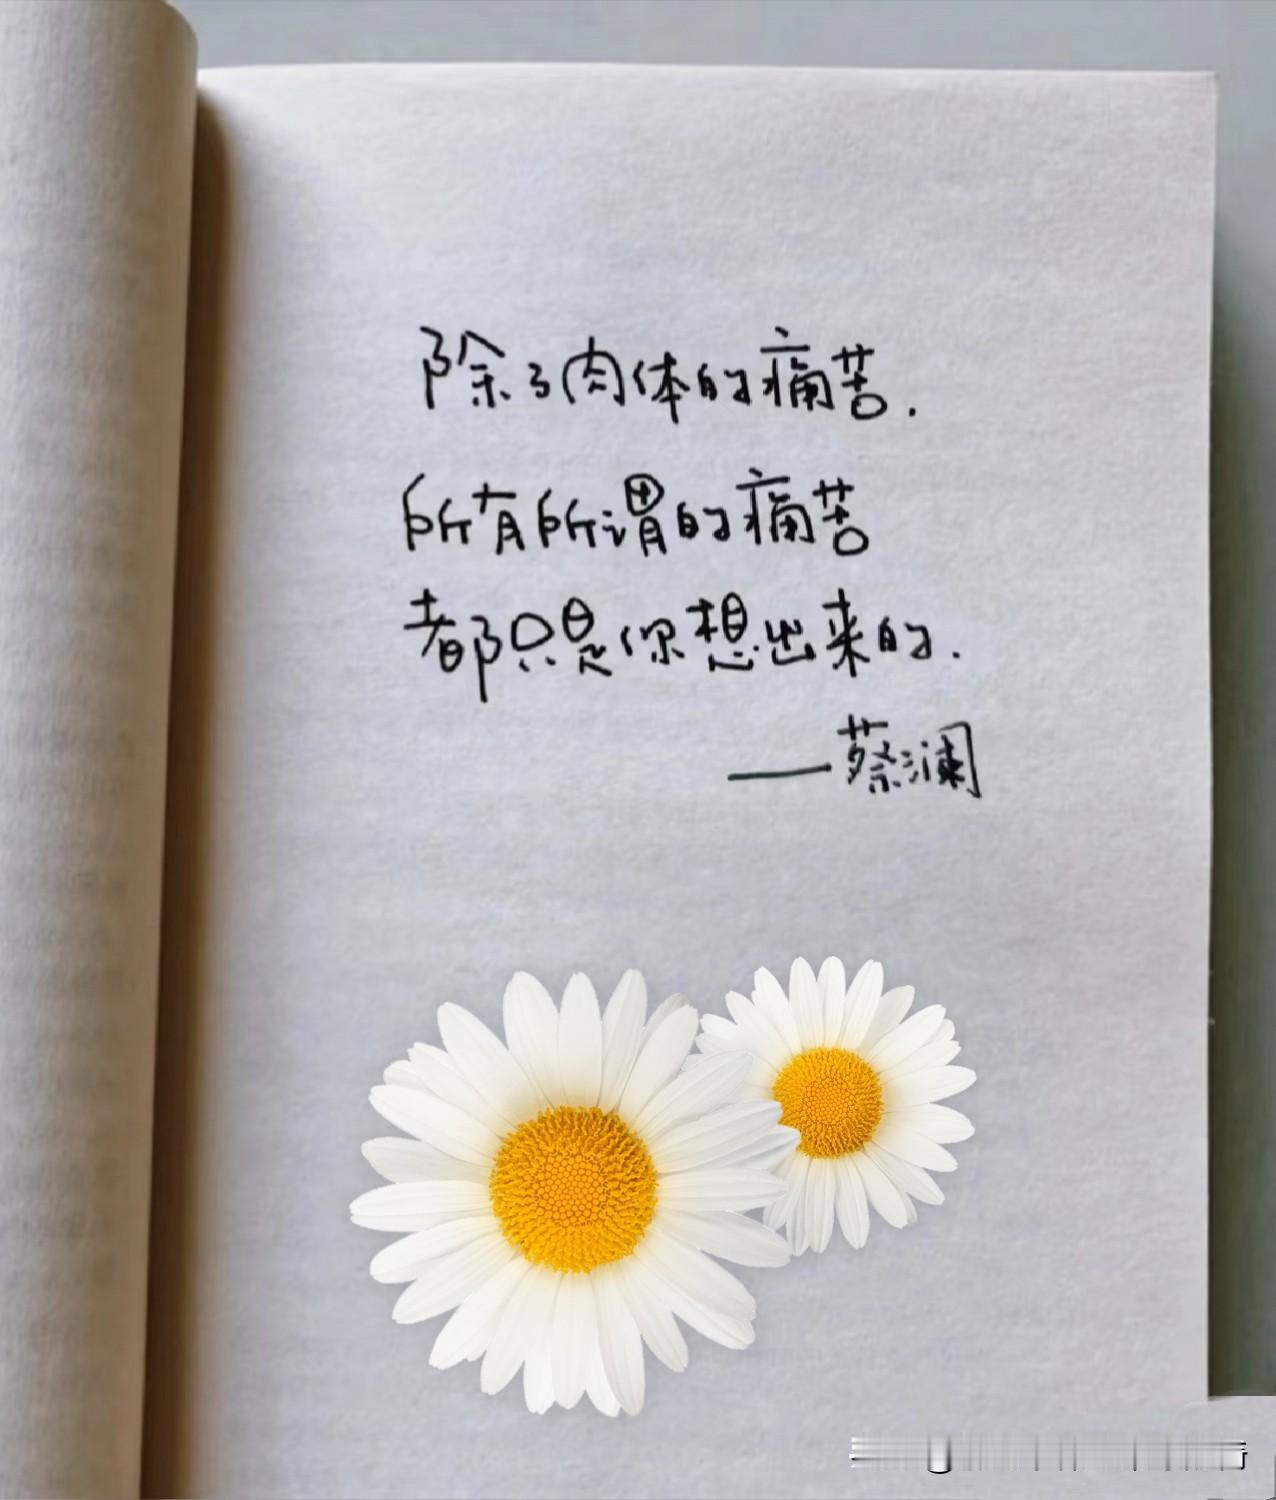 除了肉体的痛苦.
所有所谓的痛苦
都只是你想出来的.
——蔡澜